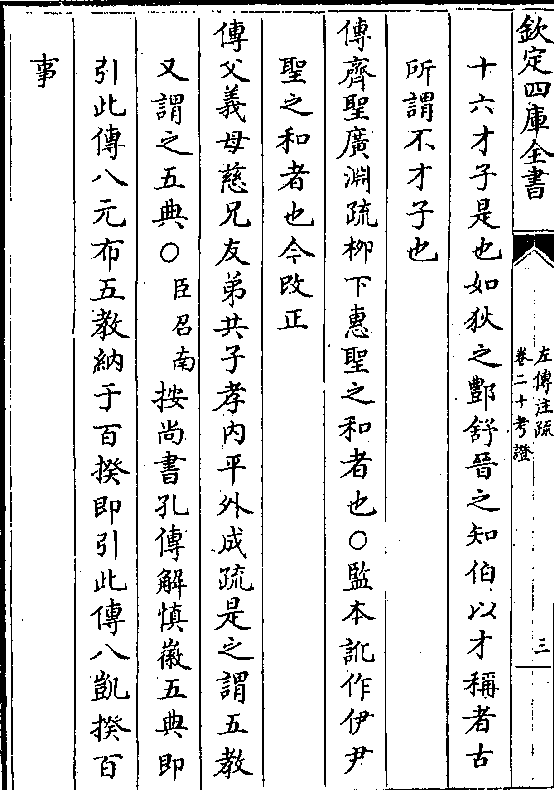 欽定四庫全書
左傳注疏
卷二十考證
三
十六才子是也如狄之酆舒晉之知伯以才稱者古
所謂不才子也
傳齊聖廣淵疏柳下惠聖之和者也○監本訛作伊尹
聖之和者也今改正
傳父義母慈兄友弟共子孝內平外成疏是之謂五教
又謂之五典○臣召南按尚書孔傳解慎徽五典即
引此傳八元布五教納于百揆即引此傳八凱揆百
事